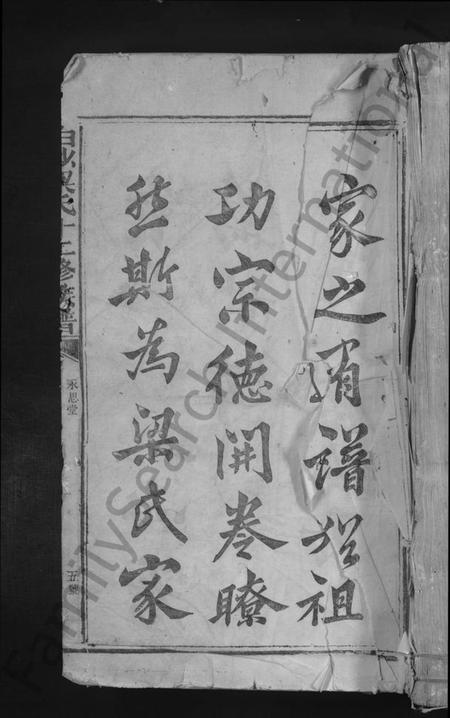 家之有譜於祖
功宗德開卷瞭
然斯為梁氏家
氏十二修族譜
永思堂
五號
FamilySearch International